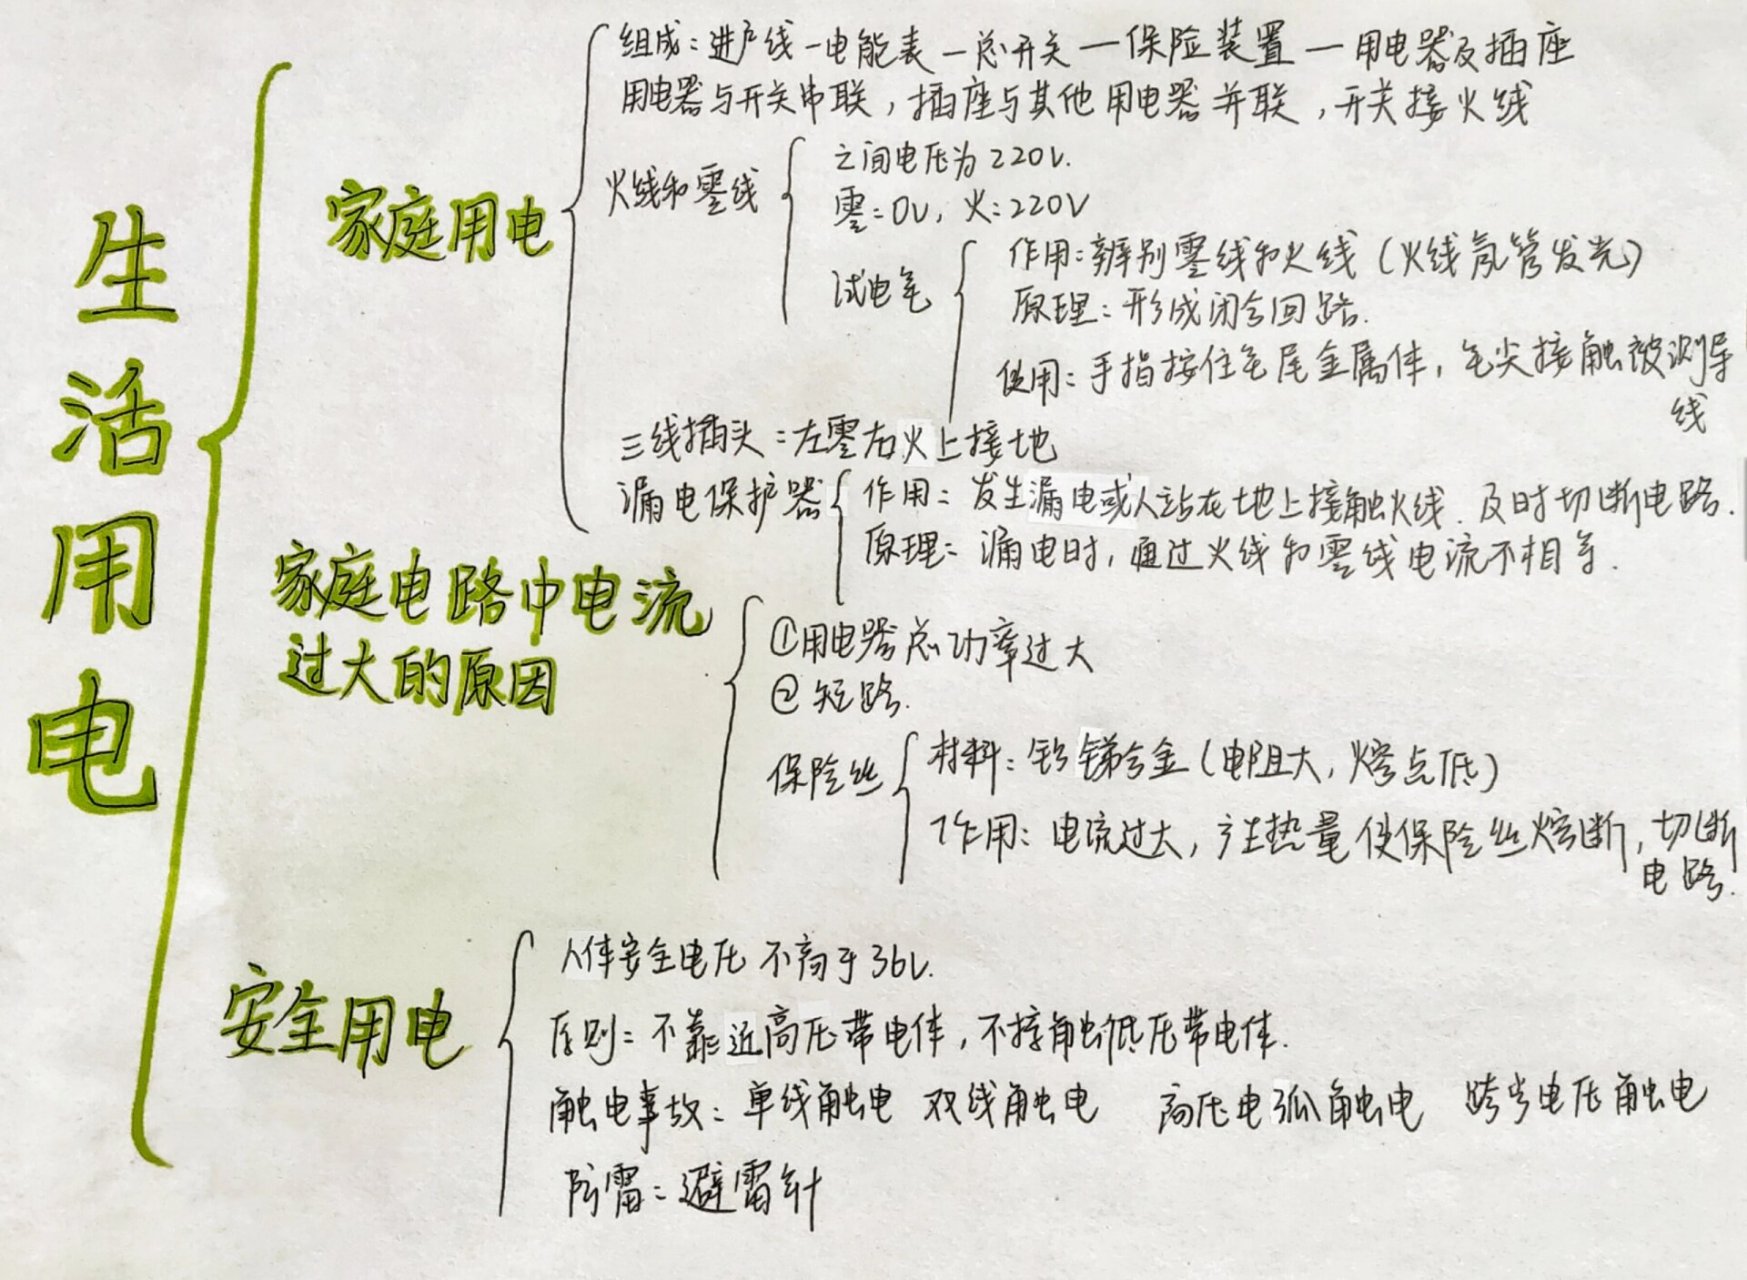 生活用电
家庭用电
组成：进户线—电能表—总开关—保险装置—用电器及插座
用电器与开关串联，插座与其他用电器并联，开关接火线
火线和零线
之间电压为220V.
零=0V，火：220V
试电笔
作用：辨别零线和火线（火线氖管发光）
原理：形成闭合回路.
使用：手指按住笔尾金属体，笔尖接触被测导
线
三线插头：左零右火上接地
漏电保护器
作用：发生漏电或人站在地上接触火线.及时切断电路.
原理：漏电时，通过火线和零线电流不相等.
家庭电路中电流
过大的原因
①用电器总功率过大
②短路.
保险丝
材料：铅锑合金（电阻大，熔点低）
作用：电流过大，产生热量使保险丝熔断，切断
电路.
安全用电
人体安全电压不高于36V.
原则：不靠近高压带电体，不接触低压带电体.
触电事故：单线触电 双线触电 高压电弧触电 跨步电压触电
防雷：避雷针